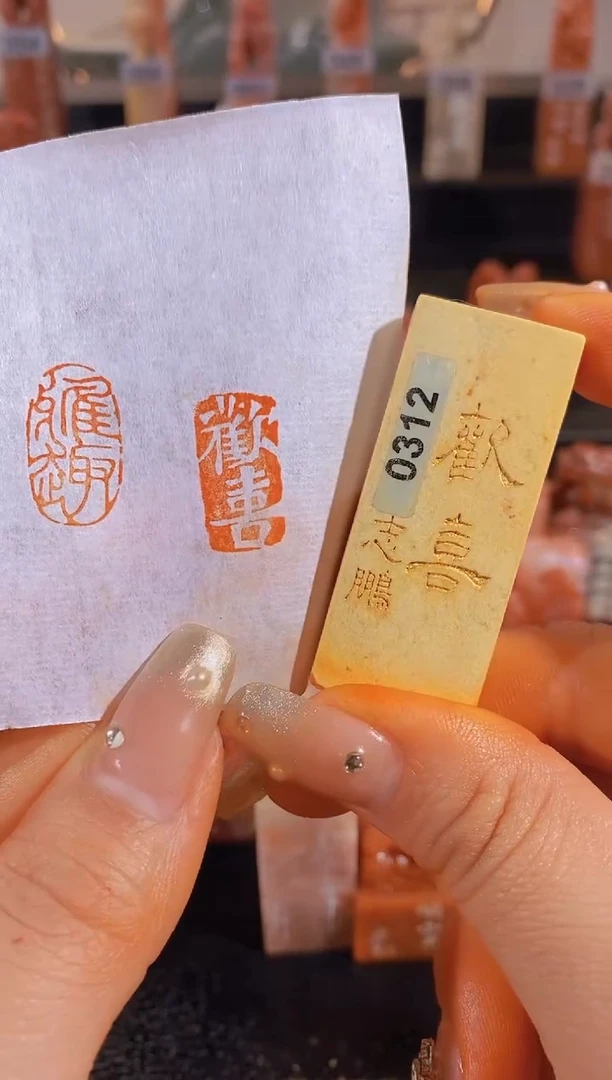 雅趣
歡喜
0312
歡喜
志鵬